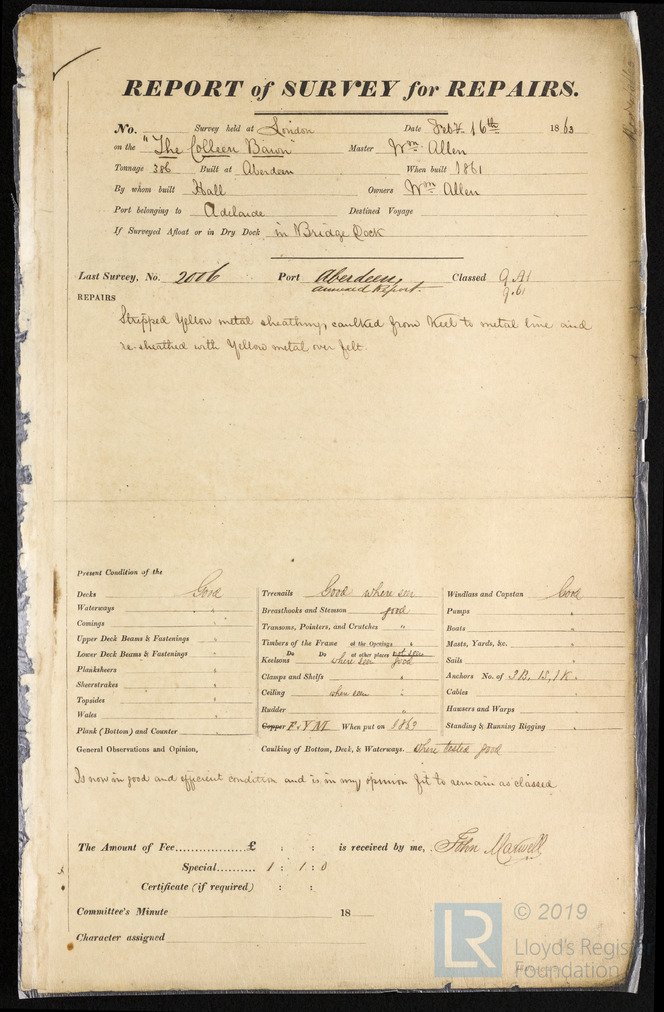 REPORT of SURVEY for REPAIRS.
No. Survey held at London Date Feby 16th 1863
on the "The Colleen Bawn" Master Wm Allen
Tonnage 386 Built at Aberdeen When built 1861
By whom built Hall Owners Wm Allen
Port belonging to Adelaide Destined Voyage
If Surveyed Afloat or in Dry Dock in Bridge Dock
Last Survey, No. 2006 Port Aberdeen Classed 9 A1
annual Report. 9.61
REPAIRS
Stripped Yellow metal sheathing, caulked from Keel to metal line and
re-sheathed with Yellow metal over felt.
Present Condition of the
Decks Good
Waterways "
Comings "
Upper Deck Beams & Fastenings "
Lower Deck Beams & Fastenings "
Planksheers "
Sheerstrakes "
Topsides "
Wales "
Plank (Bottom) and Counter "
Treenails Good where seen
Breasthooks and Stemson good
Transoms, Pointers, and Crutches "
Timbers of the Frame at the Openings "
Do Do at other places not seen
Keelsons where seen good
Clamps and Shelfs "
Ceiling when seen "
Rudder "
Copper F. & YM When put on 1863
Windlass and Capstan Good
Pumps "
Boats "
Masts, Yards, &c. "
Sails "
Anchors No. of 3B, 1S, 1K.
Cables "
Hawsers and Warps "
Standing & Running Rigging "
General Observations and Opinion, Caulking of Bottom, Deck, & Waterways. where tested good
Is now in good and efficient condition and is in my opinion fit to remain as classed
The Amount of Fee.................£ : : is received by me, John Maxwell
Special.......... 1 : 1 : 0
Certificate (if required) : :
Committee's Minute 18
Character assigned
LR © 2019
Lloyd's Register
Foundation